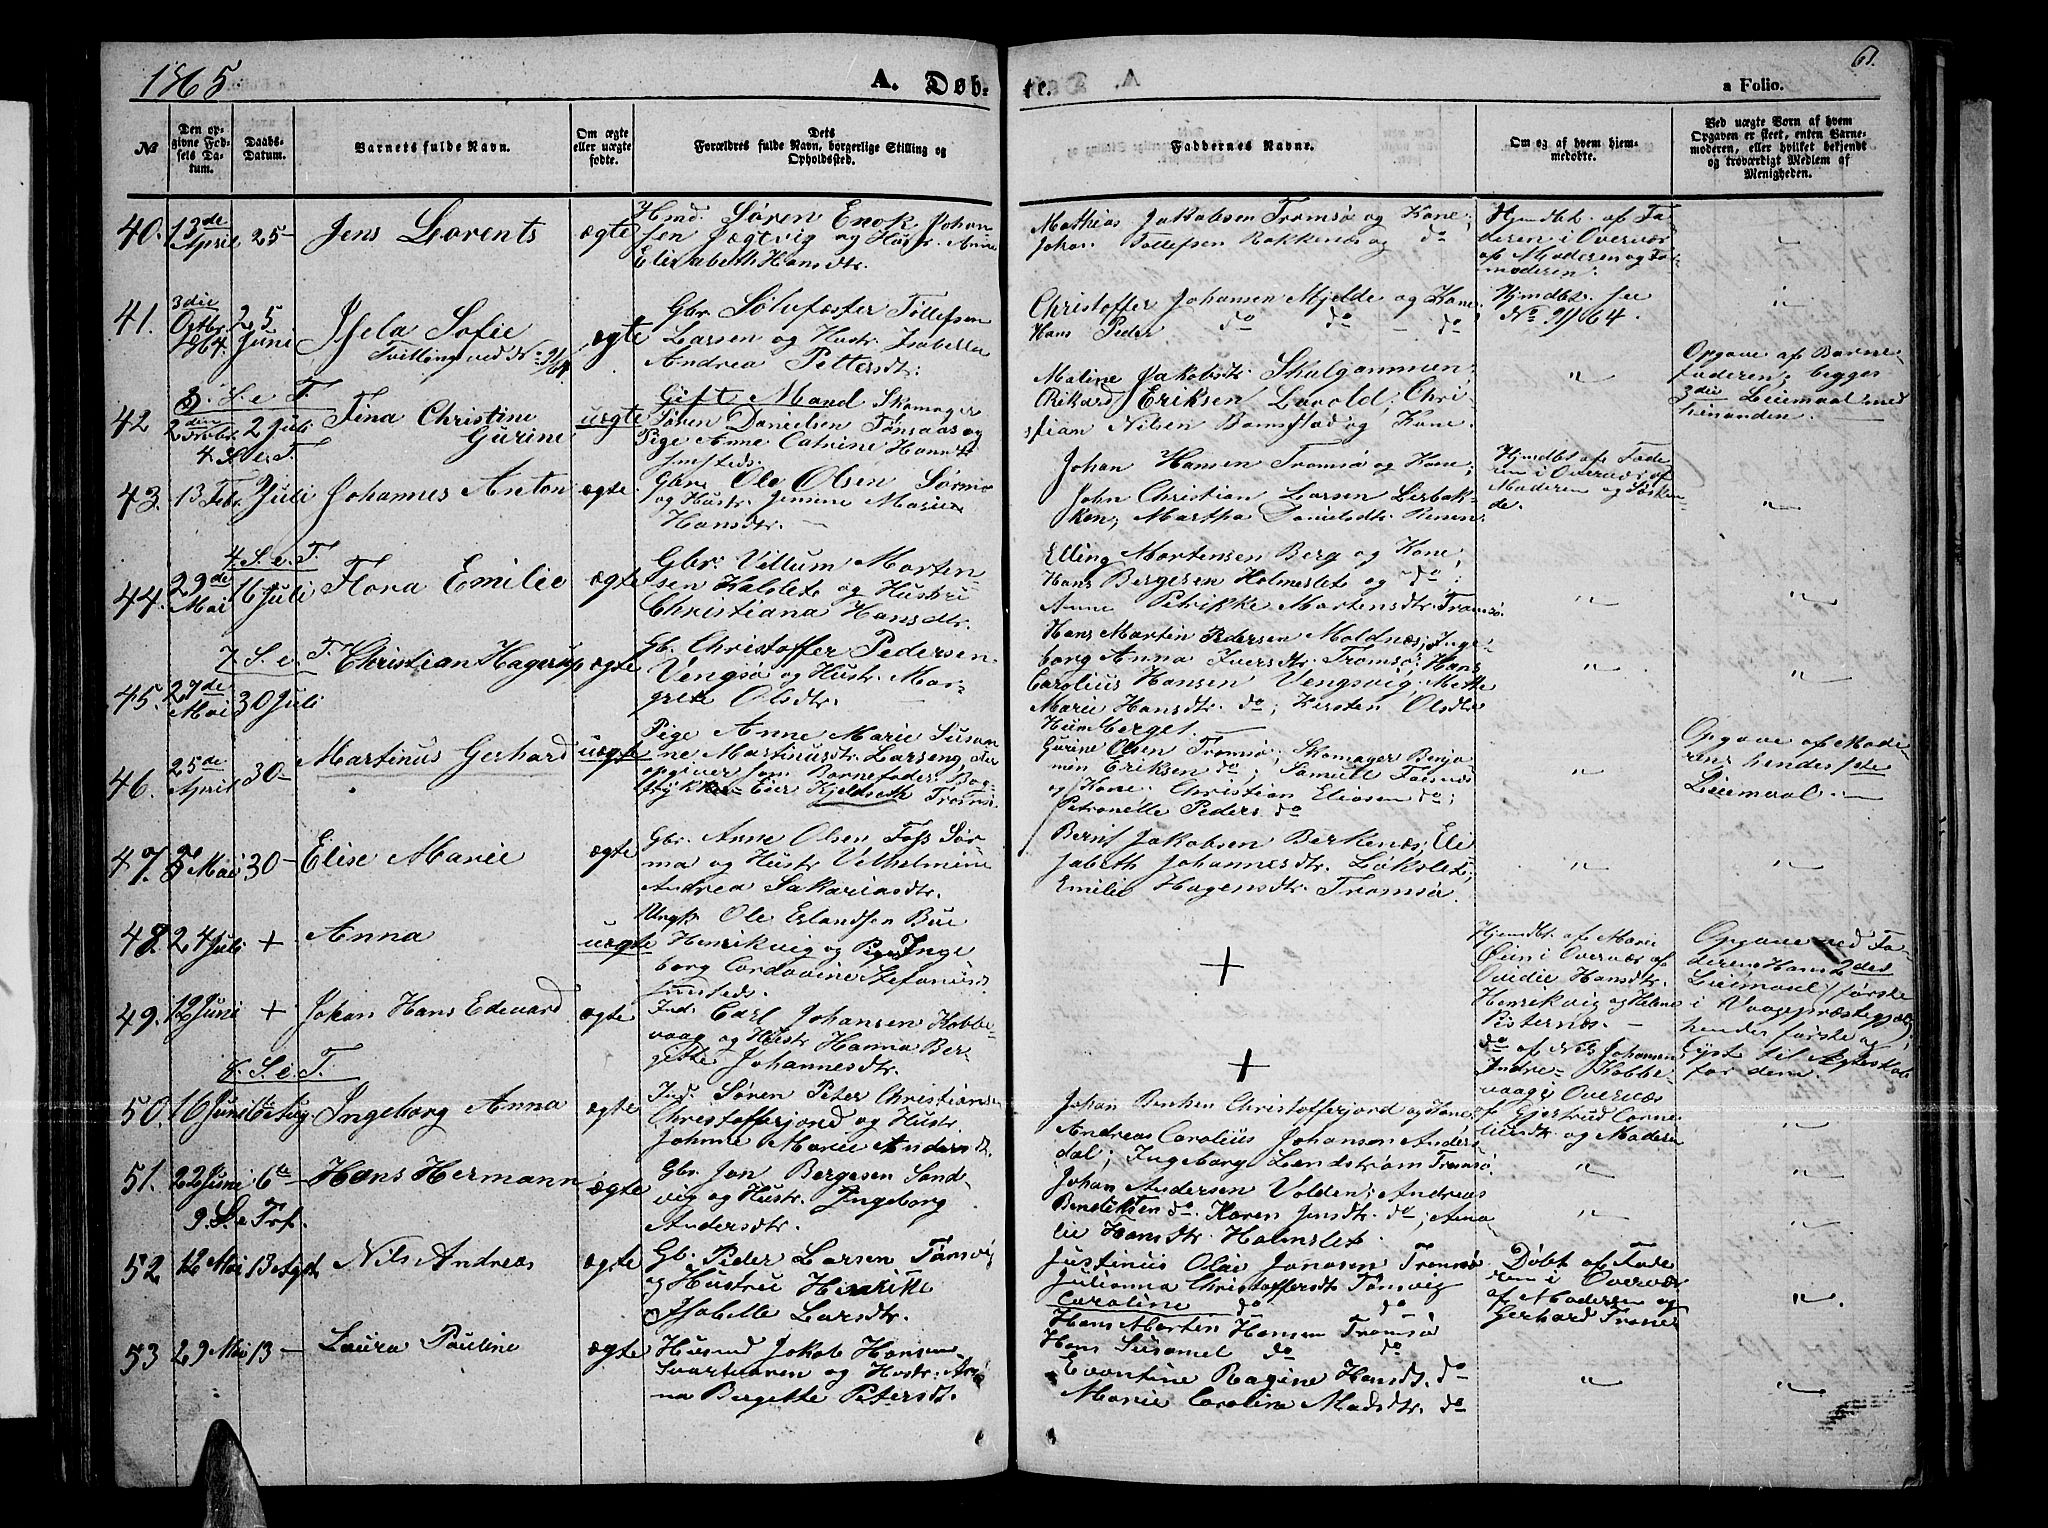 1865
A. Døb-
te.
a Folio.
61.
№
Den op-
givne Fød-
sels Da-
tum.
Daabs-
Datum.
Barnets fulde Navn.
Om ægte
eller uægte
fødte.
Dets
Forældres fulde Navn, borgerlige Stilling og
Opholdssted.
Faddernes Navne.
Om og af hvem hjem-
medøbte.
Ved uægte Børn af hvem
Opgaven er skeet, enten Barne-
moderen, eller hvilket bekjendt
og troværdigt Medlem af
Menigheden.
40. 13de April 25 – Jens Lorents ægte
Hmd. Søren Enok Johan-
sen Jægtvig og Hustr. Anne
Elisabeth Hansdtr.
Mathias Jakobsen Tromsø og Kone;
Johan Tollefsen Bakkenes og do
Hjmdbt. af Fa-
deren i Overvær
af Moderen og
moderen.
41. 3die Octbr. 1864. 25 Juni
Sofie
Tvilling ved № 91/64.
ægte
Gbr. Sølvfæster Tollefsen
Larsen og Hustr. Isabella
Andrea Pettersdtr.
Christoffer Johansen Mjelde og Kone.
Hans Peder do do – do
Hjmdbt. see
№ 91/64.
3. S. e. T.
42 2den Novbr. 2 Juli Tina Christine
Gurine
uægte
Gift Mand Skomager
Søren Danielsen Tønsaas og
Pige Anne Catrine
smsteds.
Maline Jakobsdtr. Skulgammen;
Rikard Eriksen Lavold; Chri-
stian Nilsen Bamstad og Kone.
Opgave af Barne-
faderen; begges
3die Leiermaal med
hinanden.
4. S. e. T.
43. 13 Febr. Juli Johannes Anton ægte
Gbr. Ole Olsen Sørma
og Hustr. Jensine Marie
Hansdtr. –
Johan Hansen Tromsø og Kone;
John Christian Larsen Lisbak-
ken; Martha Danielsdtr.
Hjmdbt af Fade-
ren i Overvær af
Moderen og Søsken-
de.
4. S. e. T.
44. 22de Mai 16 Juli Flora Emilie ægte
Gbr. Villum Morten-
sen Halslet og Hustru
Christiana Hansdtr.
Elling Mortensen Berg og Kone;
Hans Bergesen Holmeslet og do;
Anne Petrikke Mortensdtr. Tromsø.
7. S. e. T.
Christian Hagerup ægte
45. 27de Mai 30 Juli
Gb. Christoffer Pedersen
Vengsø og Hustr. Mar-
grete Olsdtr.
Hans Martin Pedersen Moldnæs; Inge-
borg Anna Iversdtr. Tromsø; Hans
Carolius Hansen Vengsvig; Mette
Marie Hansdtr. do; Kirsten Olsdtr
Humberget. –
46. 25de April 30 – Martinus Gerhard uægte
Pige Anne Marie Susan-
ne Martinusdtr. Larseng, der
opgiver som Barnefader: Bog-
Eier Kjeldseth Tromsø.
Gurine Olsen Tromsø; Skomager Benja-
min Eriksen do; Samuel
og Kone; Christian Eliasen do;
Petronelle Peders. do
Opgave af Mode-
ren; hendes 1ste
Leiermaal. –
47. 5 Mai 30 – Elise Marie ægte
Gbr. Arne Olsen Foss Sør-
ma og Hustr. Vilhelmine
Andrea Sakariasdtr.
Bernt Jakobsen Berkenæs; Eli-
sabeth Johannesdtr. Løkslet;
Emilie Hagensdtr. Tromsø.
48. 24 Juli + Anna uægte
Ungk. Ole Erlandsen Bue
Henrikvig og Pige Inge-
borg Cordovine Stefanusd.
smsteds.
+
Hjemdbt. af Marie
Øien i Overvær af
Ovidie Hansdtr.
Henrikvig og Helene
Pisternæs. –
Opgave ved Fa-
deren; Hans 2det
Leiermaal (første
i Vaagepræstegjæld);
hendes første og
Lyst til Ægteskab
for dem.
49. 12 Juni + Johan Hans Edevard ægte
Ind. Carl Johansen Kobbe-
vaag og Hustr. Hanna Ber-
gitte Johannesdtr.
+
do af Nils Johansen
Indre-Kobbe-
vaag i Overvær
af Gjertrud Corne-
liusdtr. og Moderen
8. S. e. T.
50. 16 Juni 6te Aug. Ingeborg Anna ægte
Ind. Søren Peter Christians.
Christofferjord og Hustr.
Johanne Marie Andersd.
Johan Christofferjord og Kone;
Andreas Carolius Johansen Anders-
dal; Ingeborg Lendstrøm Tromsø.
51. 22 Juni 6te Hans Hermann ægte
Gbr. Jon Bergesen Sand-
vig og Hustr. Ingeborg
Andersdtr.
Johan Andersen Volden; Andreas
Bendiksen do; Karen Jensdtr. do; Ama-
lie Hansdtr. Holmslet.
9. S. e. Tref.
52. 12 Mai 13 Agst. Nils Andreas ægte
Gb. Peder Larsen Tønsvig
og Hustru Henrikke
Isabelle Larsdtr.
Justinus Olai Jonasen Tromsø
Julianna Christoffersdt. Tønsvig
Caroline do do
Døbt af Fade-
ren i Overvær
af Moderen og
Gerhard
53 29 Mai 13 – Laura Pauline ægte
Husmd Jakob Hansen
Svartnæsen og Hustr.
Bergitte Petersdt.
Hans Morten Hansen Tromsø
Hans Susamel do do
Evontine Ragine Hansdt. do
Marie Carolina Madsdtr. do